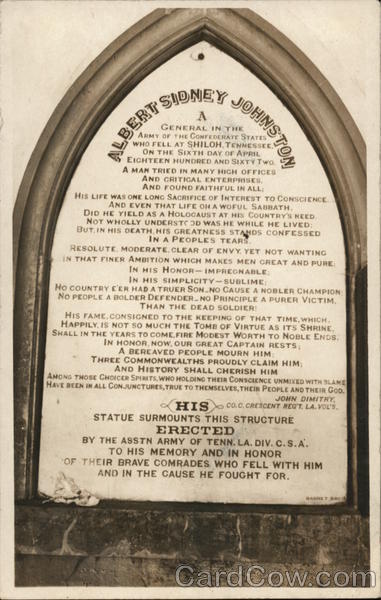 ALBERT SIDNEY JOHNSTON
A
GENERAL IN THE
ARMY OF THE CONFEDERATE STATES
WHO FELL AT SHILOH, TENNESSEE,
ON THE SIXTH DAY OF APRIL
EIGHTEEN HUNDRED AND SIXTY TWO.
A MAN TRIED IN MANY HIGH OFFICES
AND CRITICAL ENTERPRISES,
AND FOUND FAITHFUL IN ALL;
HIS LIFE WAS ONE LONG SACRIFICE OF INTEREST TO CONSCIENCE
AND EVEN THAT LIFE ON A WOFUL SABBATH,
DID HE YIELD AS A HOLOCAUST AT HIS COUNTRY'S NEED.
NOT WHOLLY UNDERSTOOD WAS HE WHILE HE LIVED;
BUT, IN HIS DEATH, HIS GREATNESS STANDS CONFESSED
IN A PEOPLE'S TEARS.
RESOLUTE, MODERATE, CLEAR OF ENVY, YET NOT WANTING
IN THAT FINER AMBITION WHICH MAKES MEN GREAT AND PURE.
IN HIS HONOR—IMPREGNABLE;
IN HIS SIMPLICITY—SUBLIME;
NO COUNTRY E'ER HAD A TRUER SON—NO CAUSE A NOBLER CHAMPION
NO PEOPLE A BOLDER DEFENDER—NO PRINCIPLE A PURER VICTIM,
THAN THE DEAD SOLDIER!
HIS FAME, CONSIGNED TO THE KEEPING OF THAT TIME, WHICH,
HAPPILY, IS NOT SO MUCH THE TOMB OF VIRTUE AS ITS SHRINE,
SHALL IN THE YEARS TO COME, FIRE MODEST WORTH TO NOBLE ENDS.
IN HONOR, NOW, OUR GREAT CAPTAIN RESTS;
A BEREAVED PEOPLE MOURN HIM;
THREE COMMONWEALTHS PROUDLY CLAIM HIM;
AND HISTORY SHALL CHERISH HIM
AMONG THOSE CHOICER SPIRITS, WHO HOLDING THEIR CONSCIENCE UNMIXED WITH BLAME
HAVE BEEN IN ALL CONJUNCTURES, TRUE TO THEMSELVES, THEIR PEOPLE AND THEIR GOD.
JOHN DIMITRY,
CO. C. CRESCENT REG'T. LA. VOL'S.
HIS
STATUE SURMOUNTS THIS STRUCTURE
ERECTED
BY THE ASSTN ARMY OF TENN. LA. DIV. C.S.A.
TO HIS MEMORY AND IN HONOR
OF THEIR BRAVE COMRADES WHO FELL WITH HIM
AND IN THE CAUSE HE FOUGHT FOR.
CardCow.com